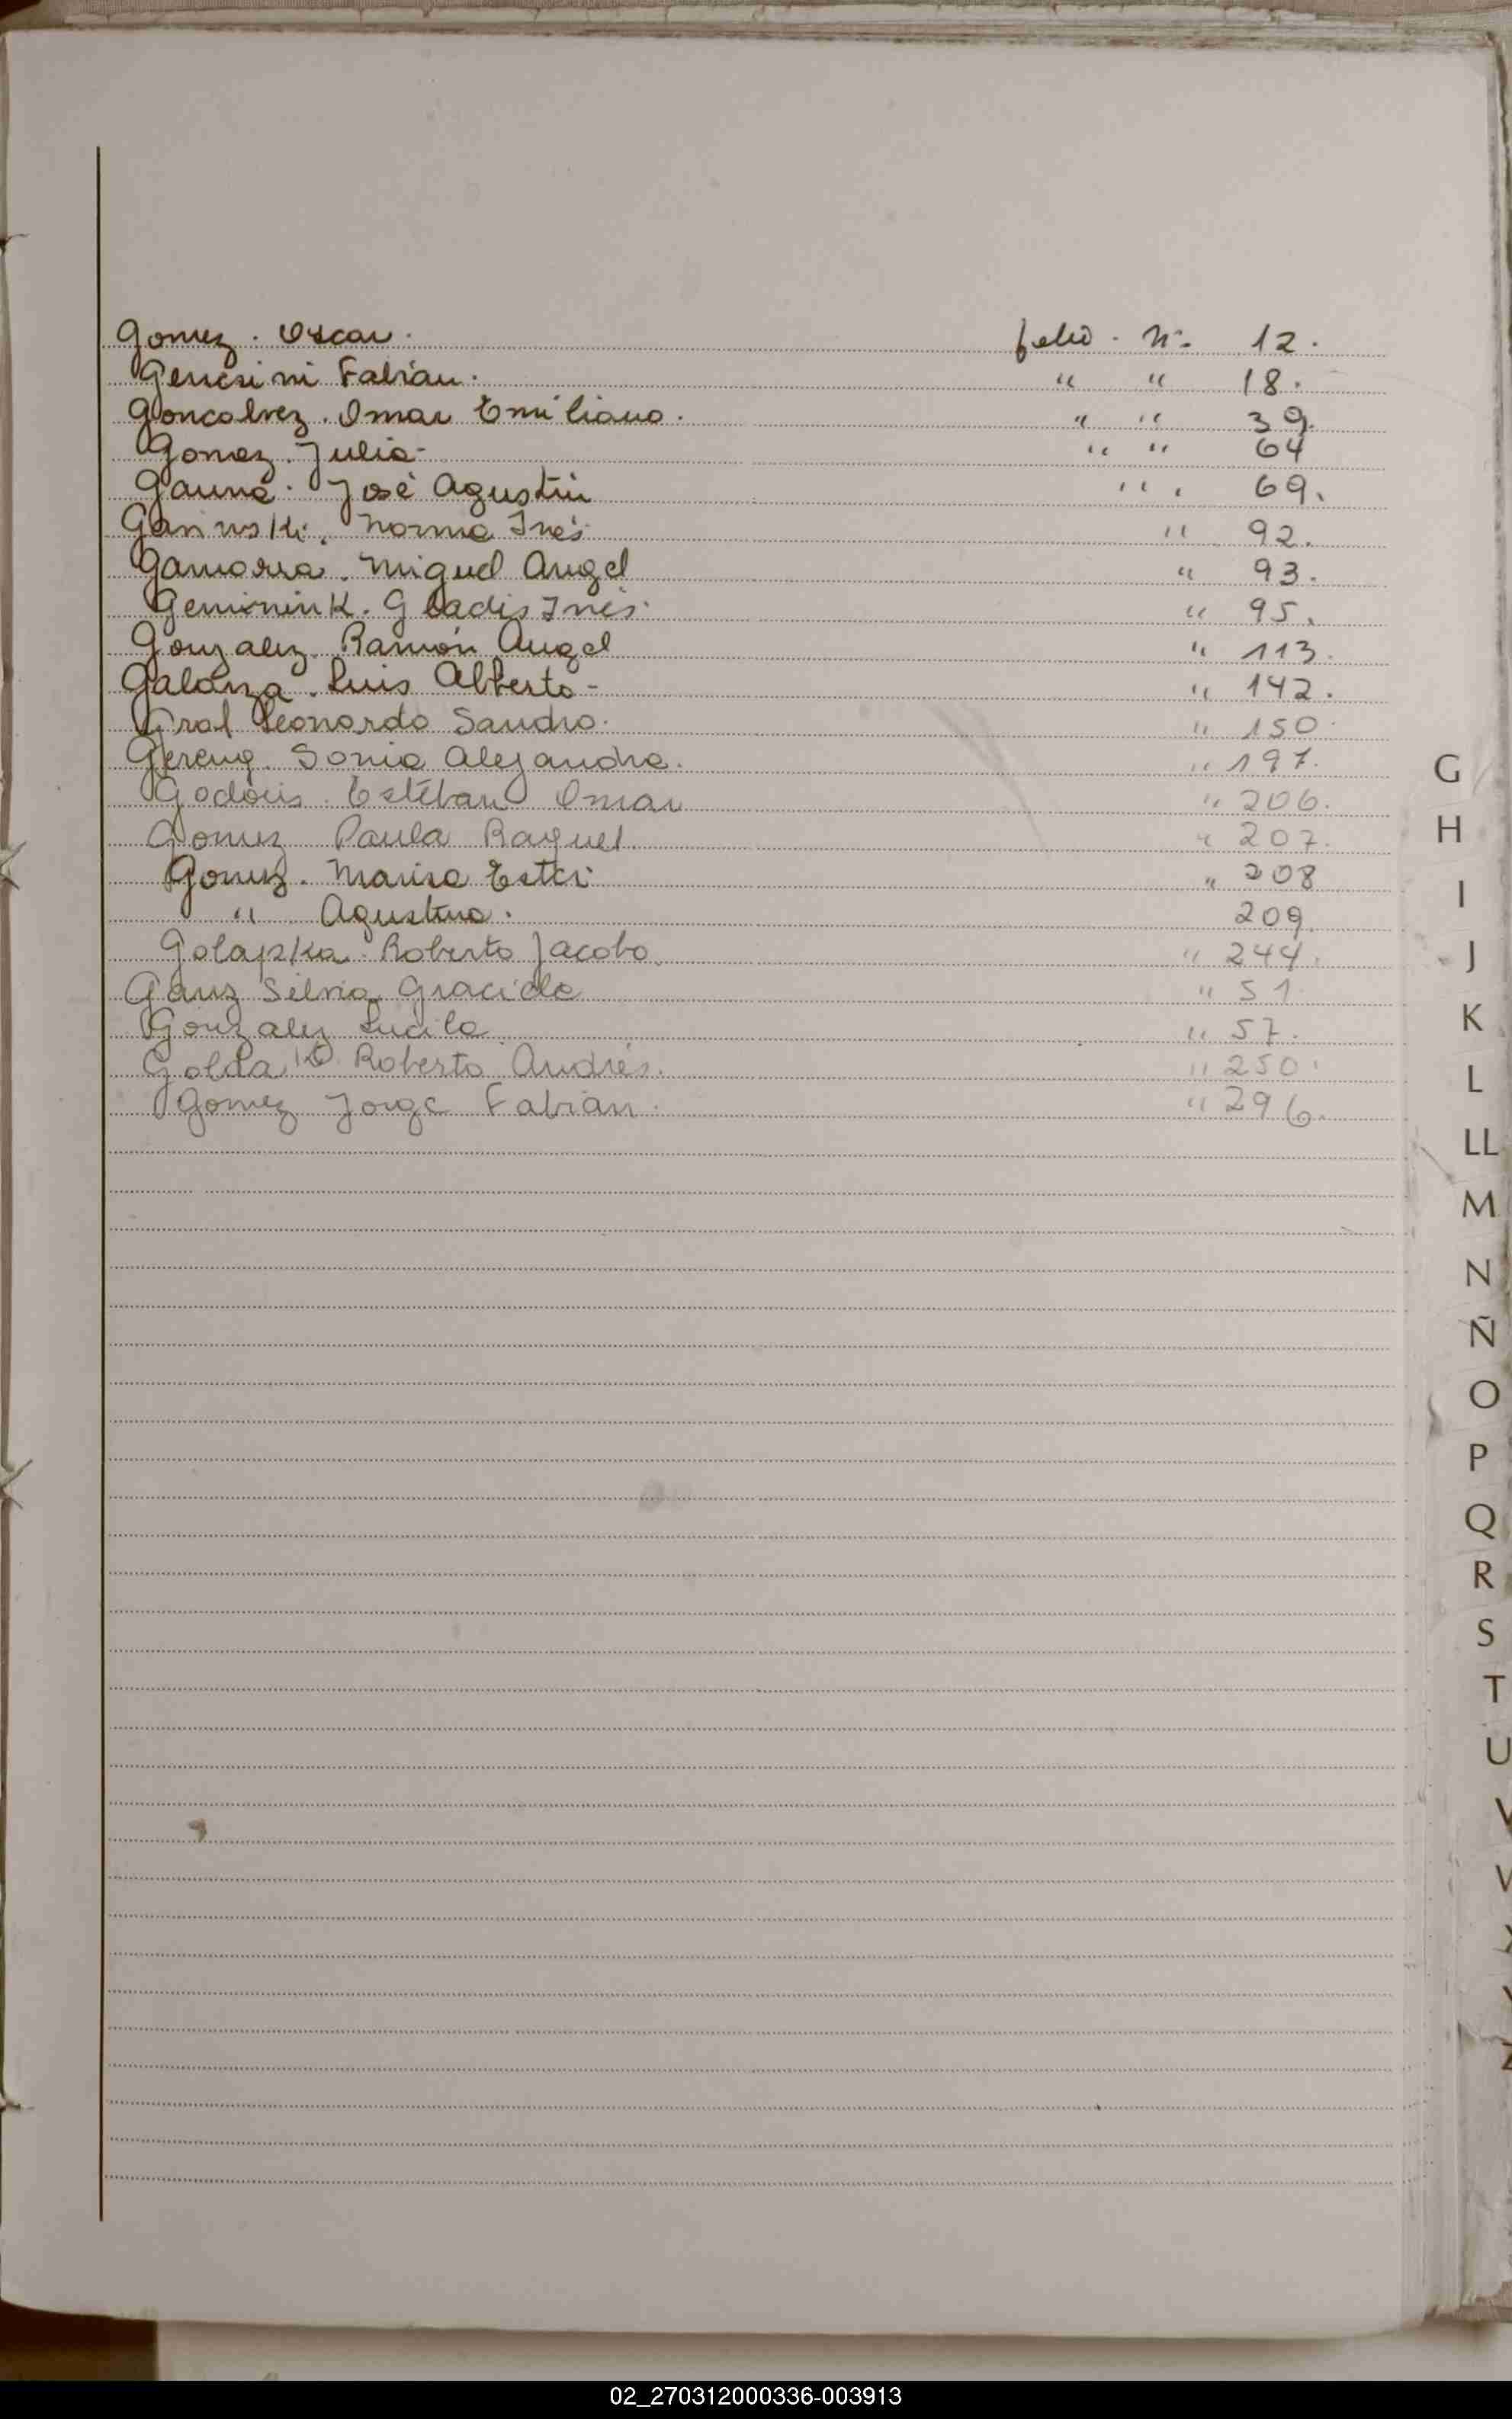 Gomez. Oscar. folio. Nº 12.
Genesini Fabián. " " 18.
Goncalvez. Omar Emiliano. " " 39.
Gomez. Julia- " " 64
Gauna. José Agustín " . 69.
Norma Inés. " 92.
Gamorra. Miguel Angel " 93.
Gladis Inés. " 95.
Gonzalez. Ramón Angel " 113.
Galarza. Luis Alberto- " 142.
Gral Leonardo Sandro. " 150.
Sonia Alejandra. " 197.
Esteban Omar " 206.
Gomez Paula Raquel. " 207.
Gomez. Marisa Ester. " 208
" Agustina. 209.
Golapka. Roberto Jacobo. " 244.
Ganz Silvia Graciela " 51.
Gonzalez Lucila " 57.
Roberto Andrés. " 250.
Gomez Jorge Fabián. " 296.
G
H
I
J
K
L
LL
M
N
Ñ
O
P
Q
R
S
T
U
V
02_270312000336-003913